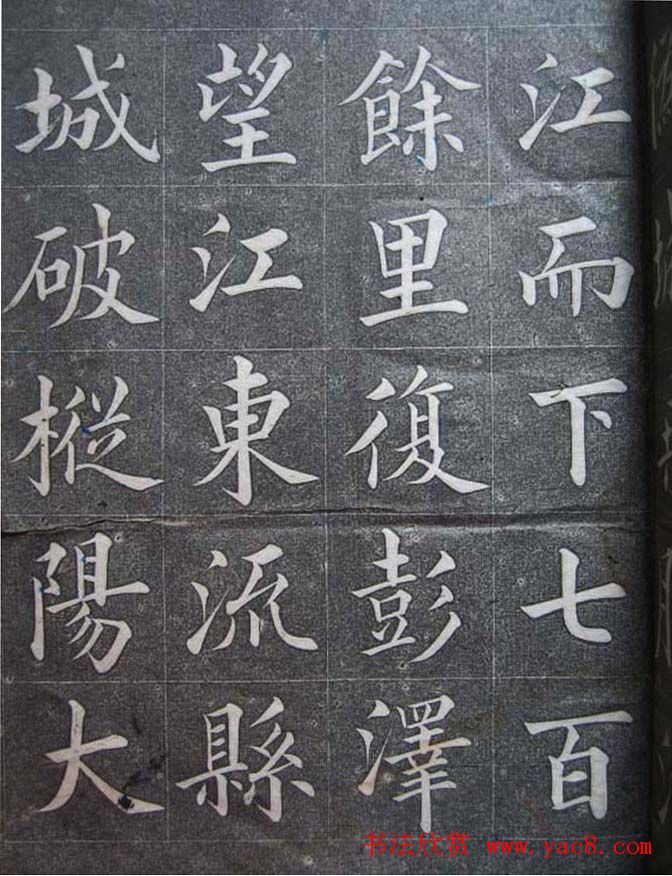 江而下七百
餘里復彭澤
望江東流縣
城破樅陽大
书法欣赏 www.yac8.com